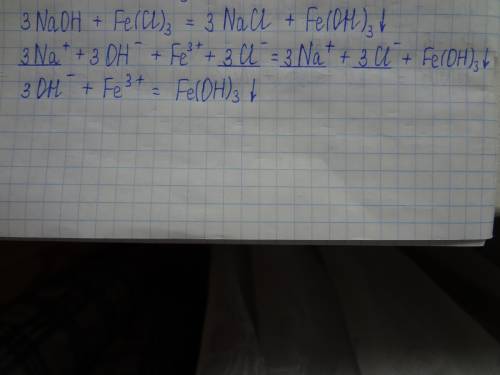 3NaOH + Fe(Cl)₃ = 3NaCl + Fe(OH)₃↓
3Na⁺ + 3OH⁻ + Fe³⁺ + 3Cl⁻ = 3Na⁺ + 3Cl⁻ + Fe(OH)₃↓
3OH⁻ + Fe³⁺ = Fe(OH)₃↓